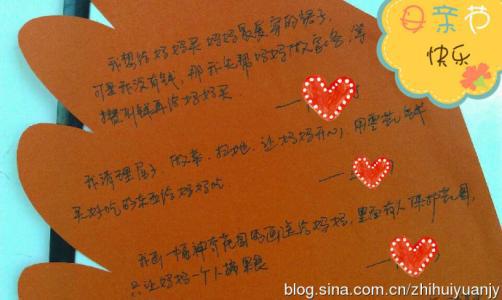 母亲节
快乐
我想给妈妈买妈妈最喜欢的裙子，
可是我没有钱，那我先帮妈妈做家务，等
攒到钱再给妈妈买
我清理屋子、做菜、扫地、让妈妈开心，用零花钱
买好吃的东西给妈妈吃
我画一幅神奇花园的画送给妈妈，里面有人保护花园，
只让妈妈一个人摘果
blog.sina.com.cn/zhihuiyuanjy